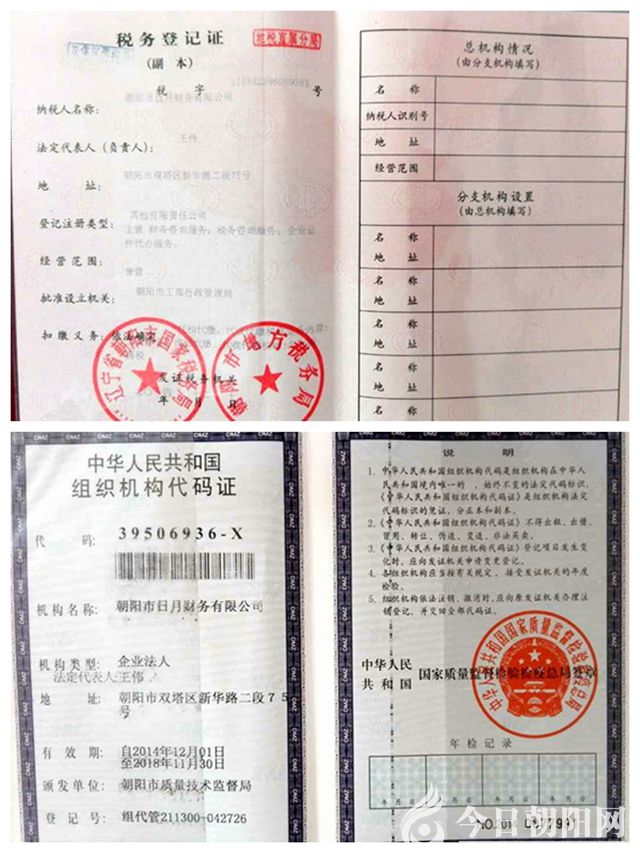 税务登记证
(副 本)
地税直属分局
税 字 21130239506936X 号
纳税人名称: 朝阳市日月财务有限公司
法定代表人(负责人): 王伟
地 址: 朝阳市双塔区新华路二段75号
登记注册类型: 其他有限责任公司
主营 财务咨询服务; 税务咨询服务; 企业证
件代办服务。
经营范围: 兼营
批准设立机关: 朝阳市工商行政管理局
扣缴义务: 依法确定
发证税务机关
年 月 日
辽宁省朝阳市国家税务局
朝阳市地方税务局
总机构情况
(由分支机构填写)
名 称
纳税人识别号
地 址
经营范围
分支机构设置
(由总机构填写)
名 称
地 址
名 称
地 址
名 称
地 址
名 称
地 址
名 称
中华人民共和国
组织机构代码证
代 码: 39506936-X
机构名称: 朝阳市日月财务有限公司
机构类型: 企业法人
法定代表人王伟
地 址: 朝阳市双塔区新华路二段75
号
有 效 期: 自2014年12月01日
至2018年11月30日
颁发单位: 朝阳市质量技术监督局
登 记 号: 组代管211300-042726
说 明
1. 中华人民共和国组织机构代码是组织机构在中华人
民共和国境内唯一的、始终不变的法定代码标识,
《中华人民共和国组织机构代码证》是组织机构法定
代码标识的凭证,分正本和副本。
2. 《中华人民共和国组织机构代码证》不得出租、出借、
冒用、转让、伪造、变造、非法买卖。
3. 《中华人民共和国组织机构代码证》登记项目发生变
化时,应向发证机关申请变更登记。
4. 各组织机构应当按有关规定,接受发证机关的年度
检验。
5. 组织机构依法注销、撤消时,应向原发证机关办理注
销登记,并交回全部代码证。
中华人民
共 和 国 国家质量监督检验检疫总局签章
中华人民共和国国家质量监督检验检疫总局
年检记录
年 月 日 年 月 日 年 月 日 年 月 日
今日朝阳网